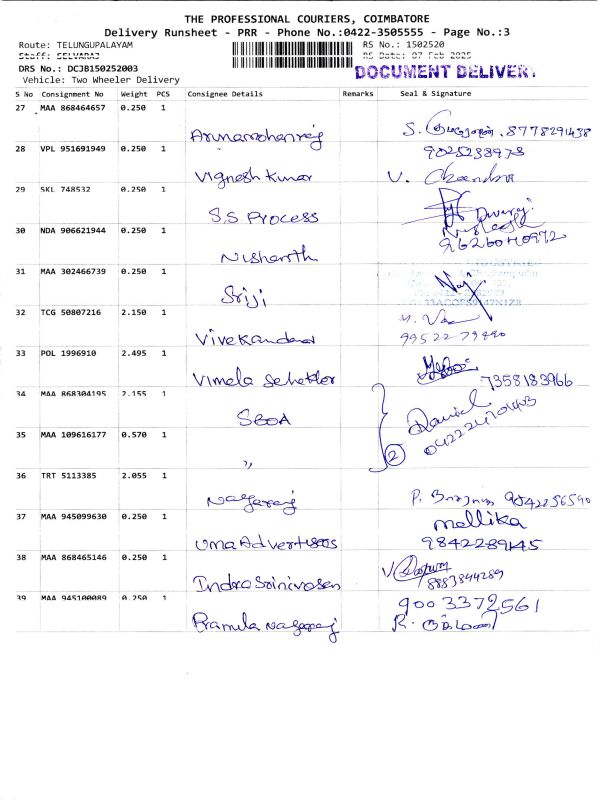 THE PROFESSIONAL COURIERS, COIMBATORE
Delivery Runsheet - PRR - Phone No.:0422-3505555 - Page No.:3
Route: TELUNGUPALAYAM
RS No.: 1502520
Staff: SELVARAJ
RS Date: 07 Feb 2025
DRS No.: DCJB150252003
DOCUMENT DELIVERY
Vehicle: Two Wheeler Delivery
S No Consignment No Weight PCS Consignee Details Remarks Seal & Signature
27 MAA 868464657 0.250 1
Arunamohanraj S. 8778291438
28 VPL 951691949 0.250 1 9025238973
Vignesh Kumar V. Chandra
29 SKL 748532 0.250 1
S.S Process
30 NDA 906621944 0.250 1
Nishanth
31 MAA 302466739 0.250 1
Sriji
32 TCG 50807216 2.150 1
99522 79490
33 POL 1996910 2.495 1
Vimela 7358183966
34 MAA 868304195 2.155 1
SBOA Daniel
35 MAA 109616177 0.570 1
,, 2
36 TRT 5113385 2.055 1
Nagaraj P. 9842256590
37 MAA 945099630 0.250 1 mallika
Uma Advertisers 9842289145
38 MAA 868465146 0.250 1
Indra Srinivasan 8883844289
39 MAA 945100089 0.250 1 9003372561
Pramila Nagaraj R.